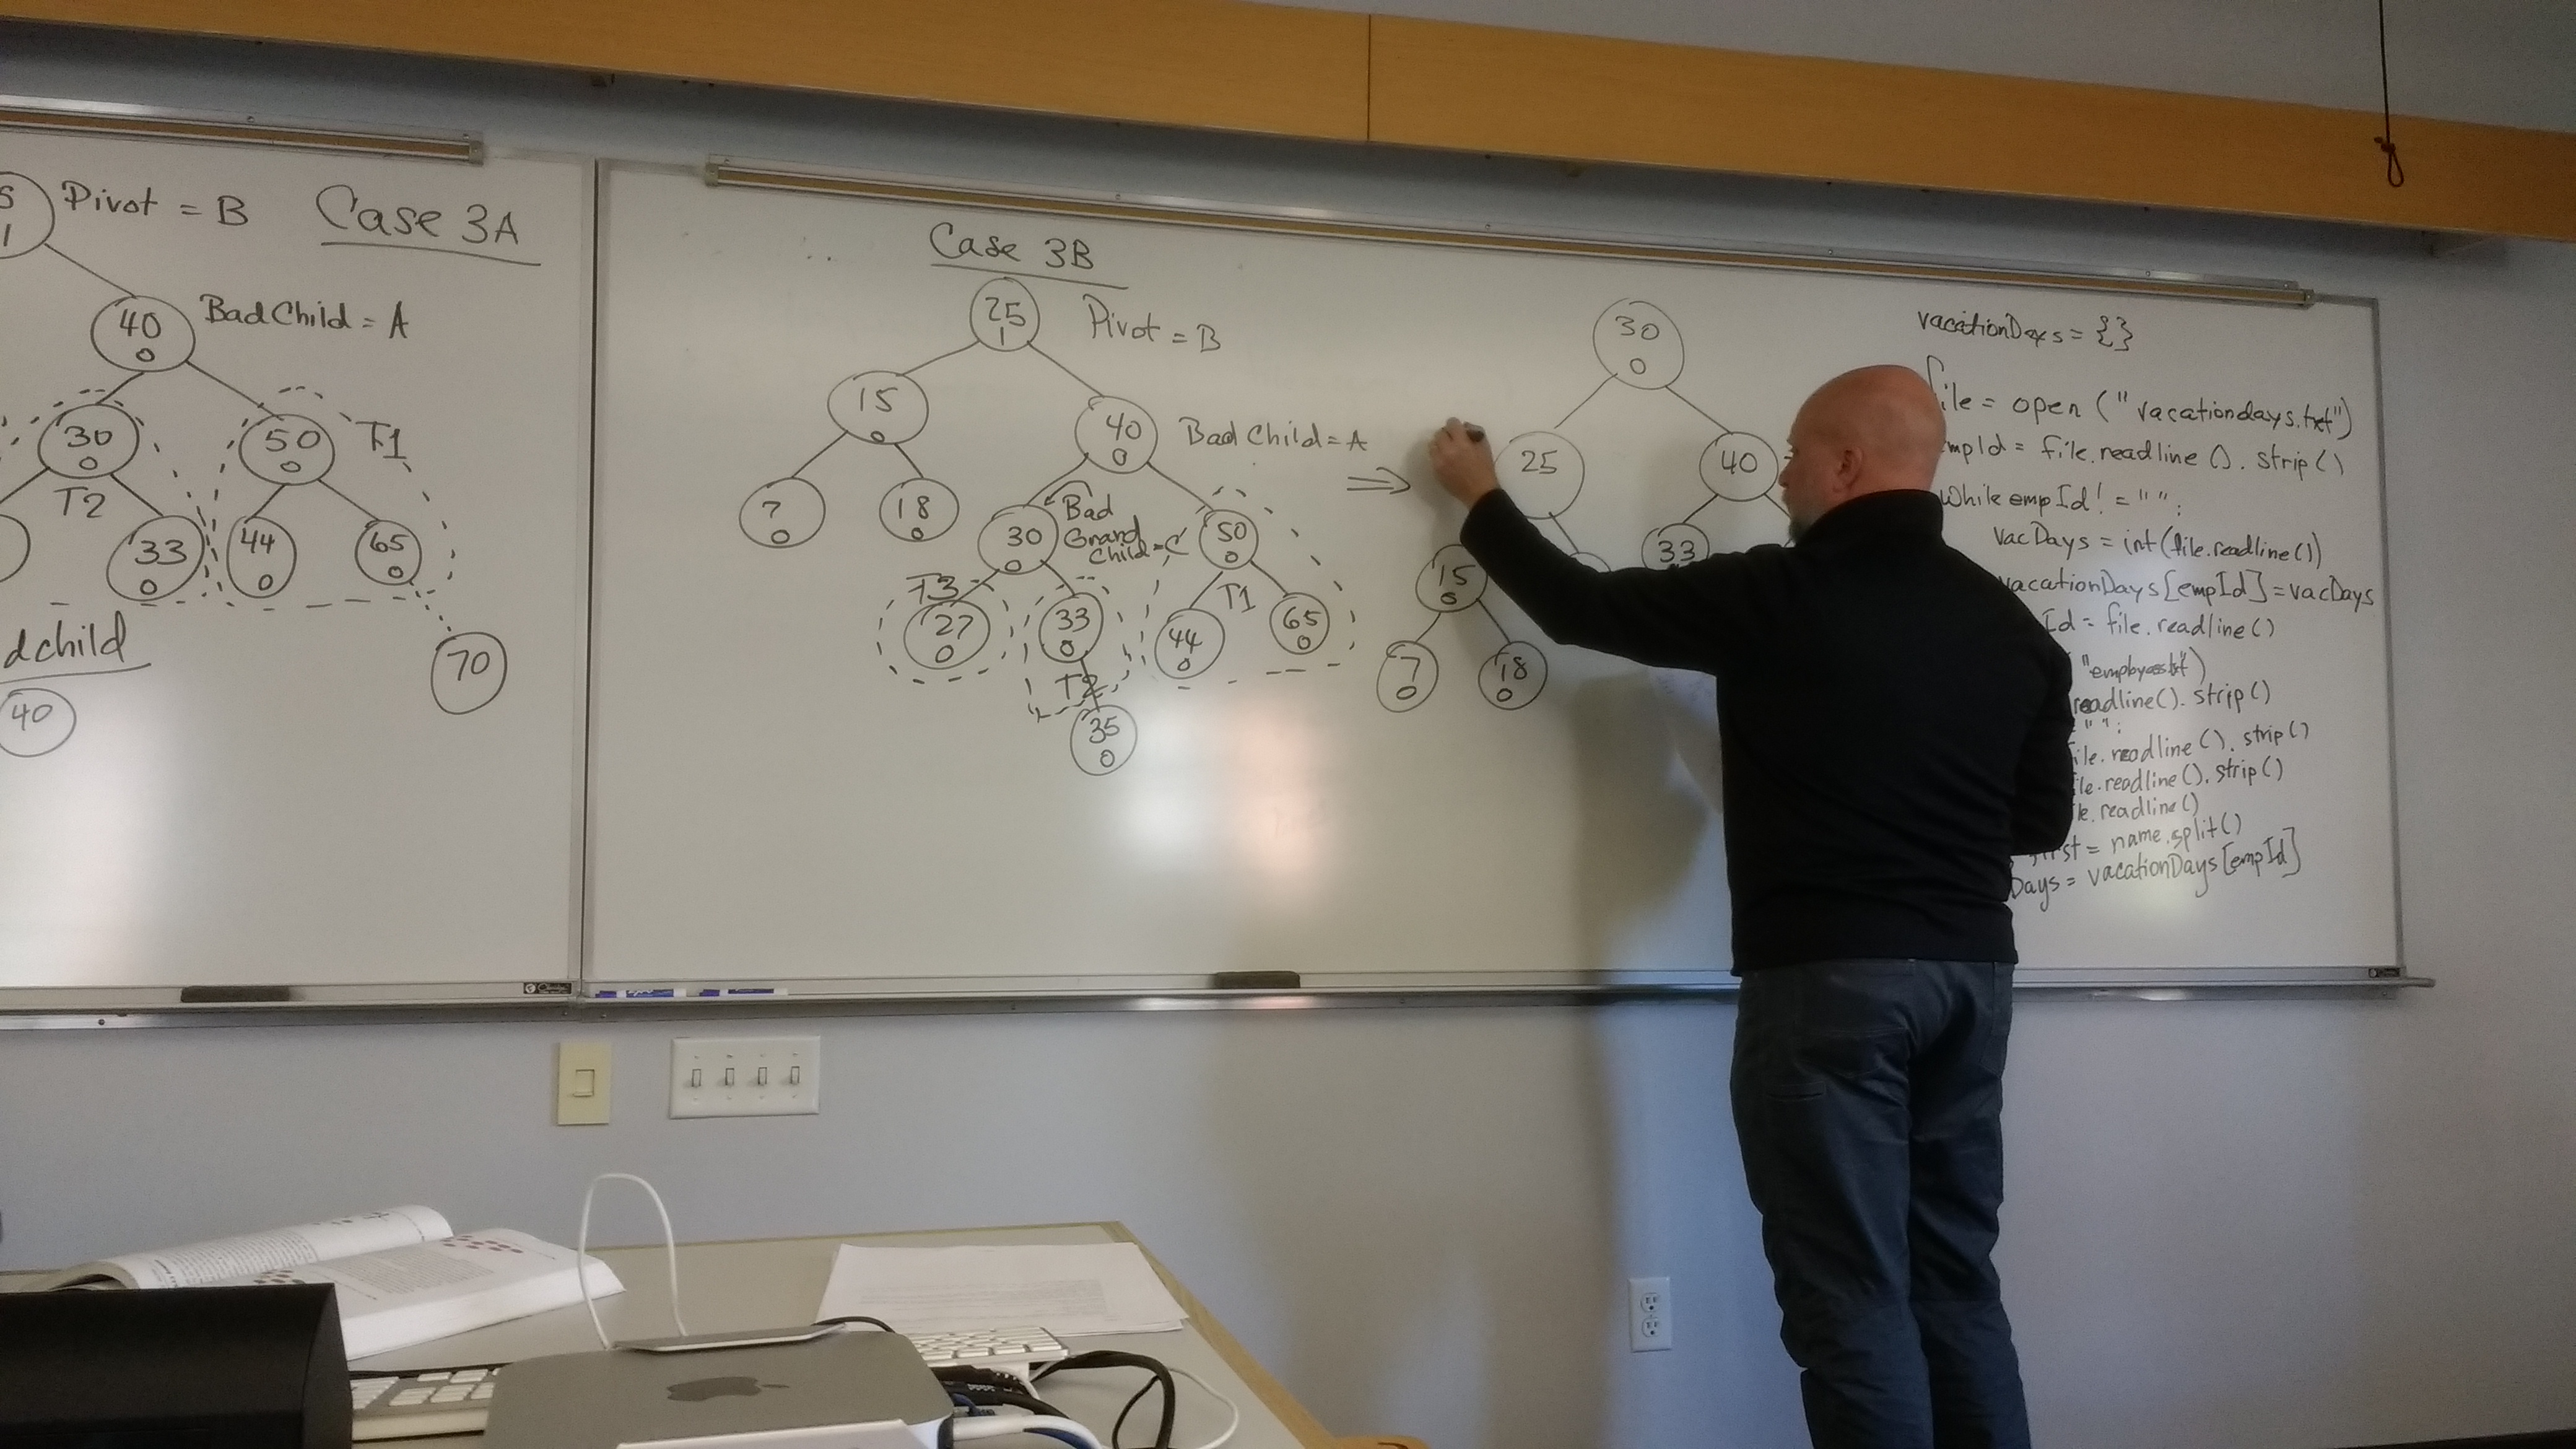 Pivot = B
Case 3A
40
0
Bad Child = A
30
0
50
0
T1
T2
33
0
44
0
65
0
70
dchild
40
Case 3B
25
1
Pivot = B
15
0
40
0
Bad Child = A
7
0
18
0
30
0
Bad
Grand
Child = C
50
0
T3
27
0
33
0
T2
35
0
44
0
T1
65
0
⇒
30
0
25
40
15
0
33
7
0
18
0
vacationDays = {}
file = open ("vacationdays.txt")
empId = file.readline (). strip ()
While empId != "":
vacDays = int(file.readline())
vacationDays[empId] = vacDays
Id = file.readline ()
readline(). strip ()
"":
file.readline (). strip ()
file.readline (). strip ()
file.readline ()
first = name.split ()
Days = vacationDays[empId]